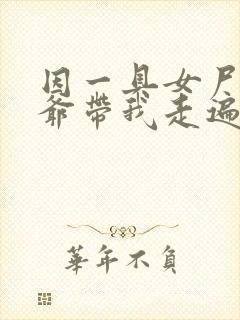 因一具女尸
爺帶我走遍
華年不負